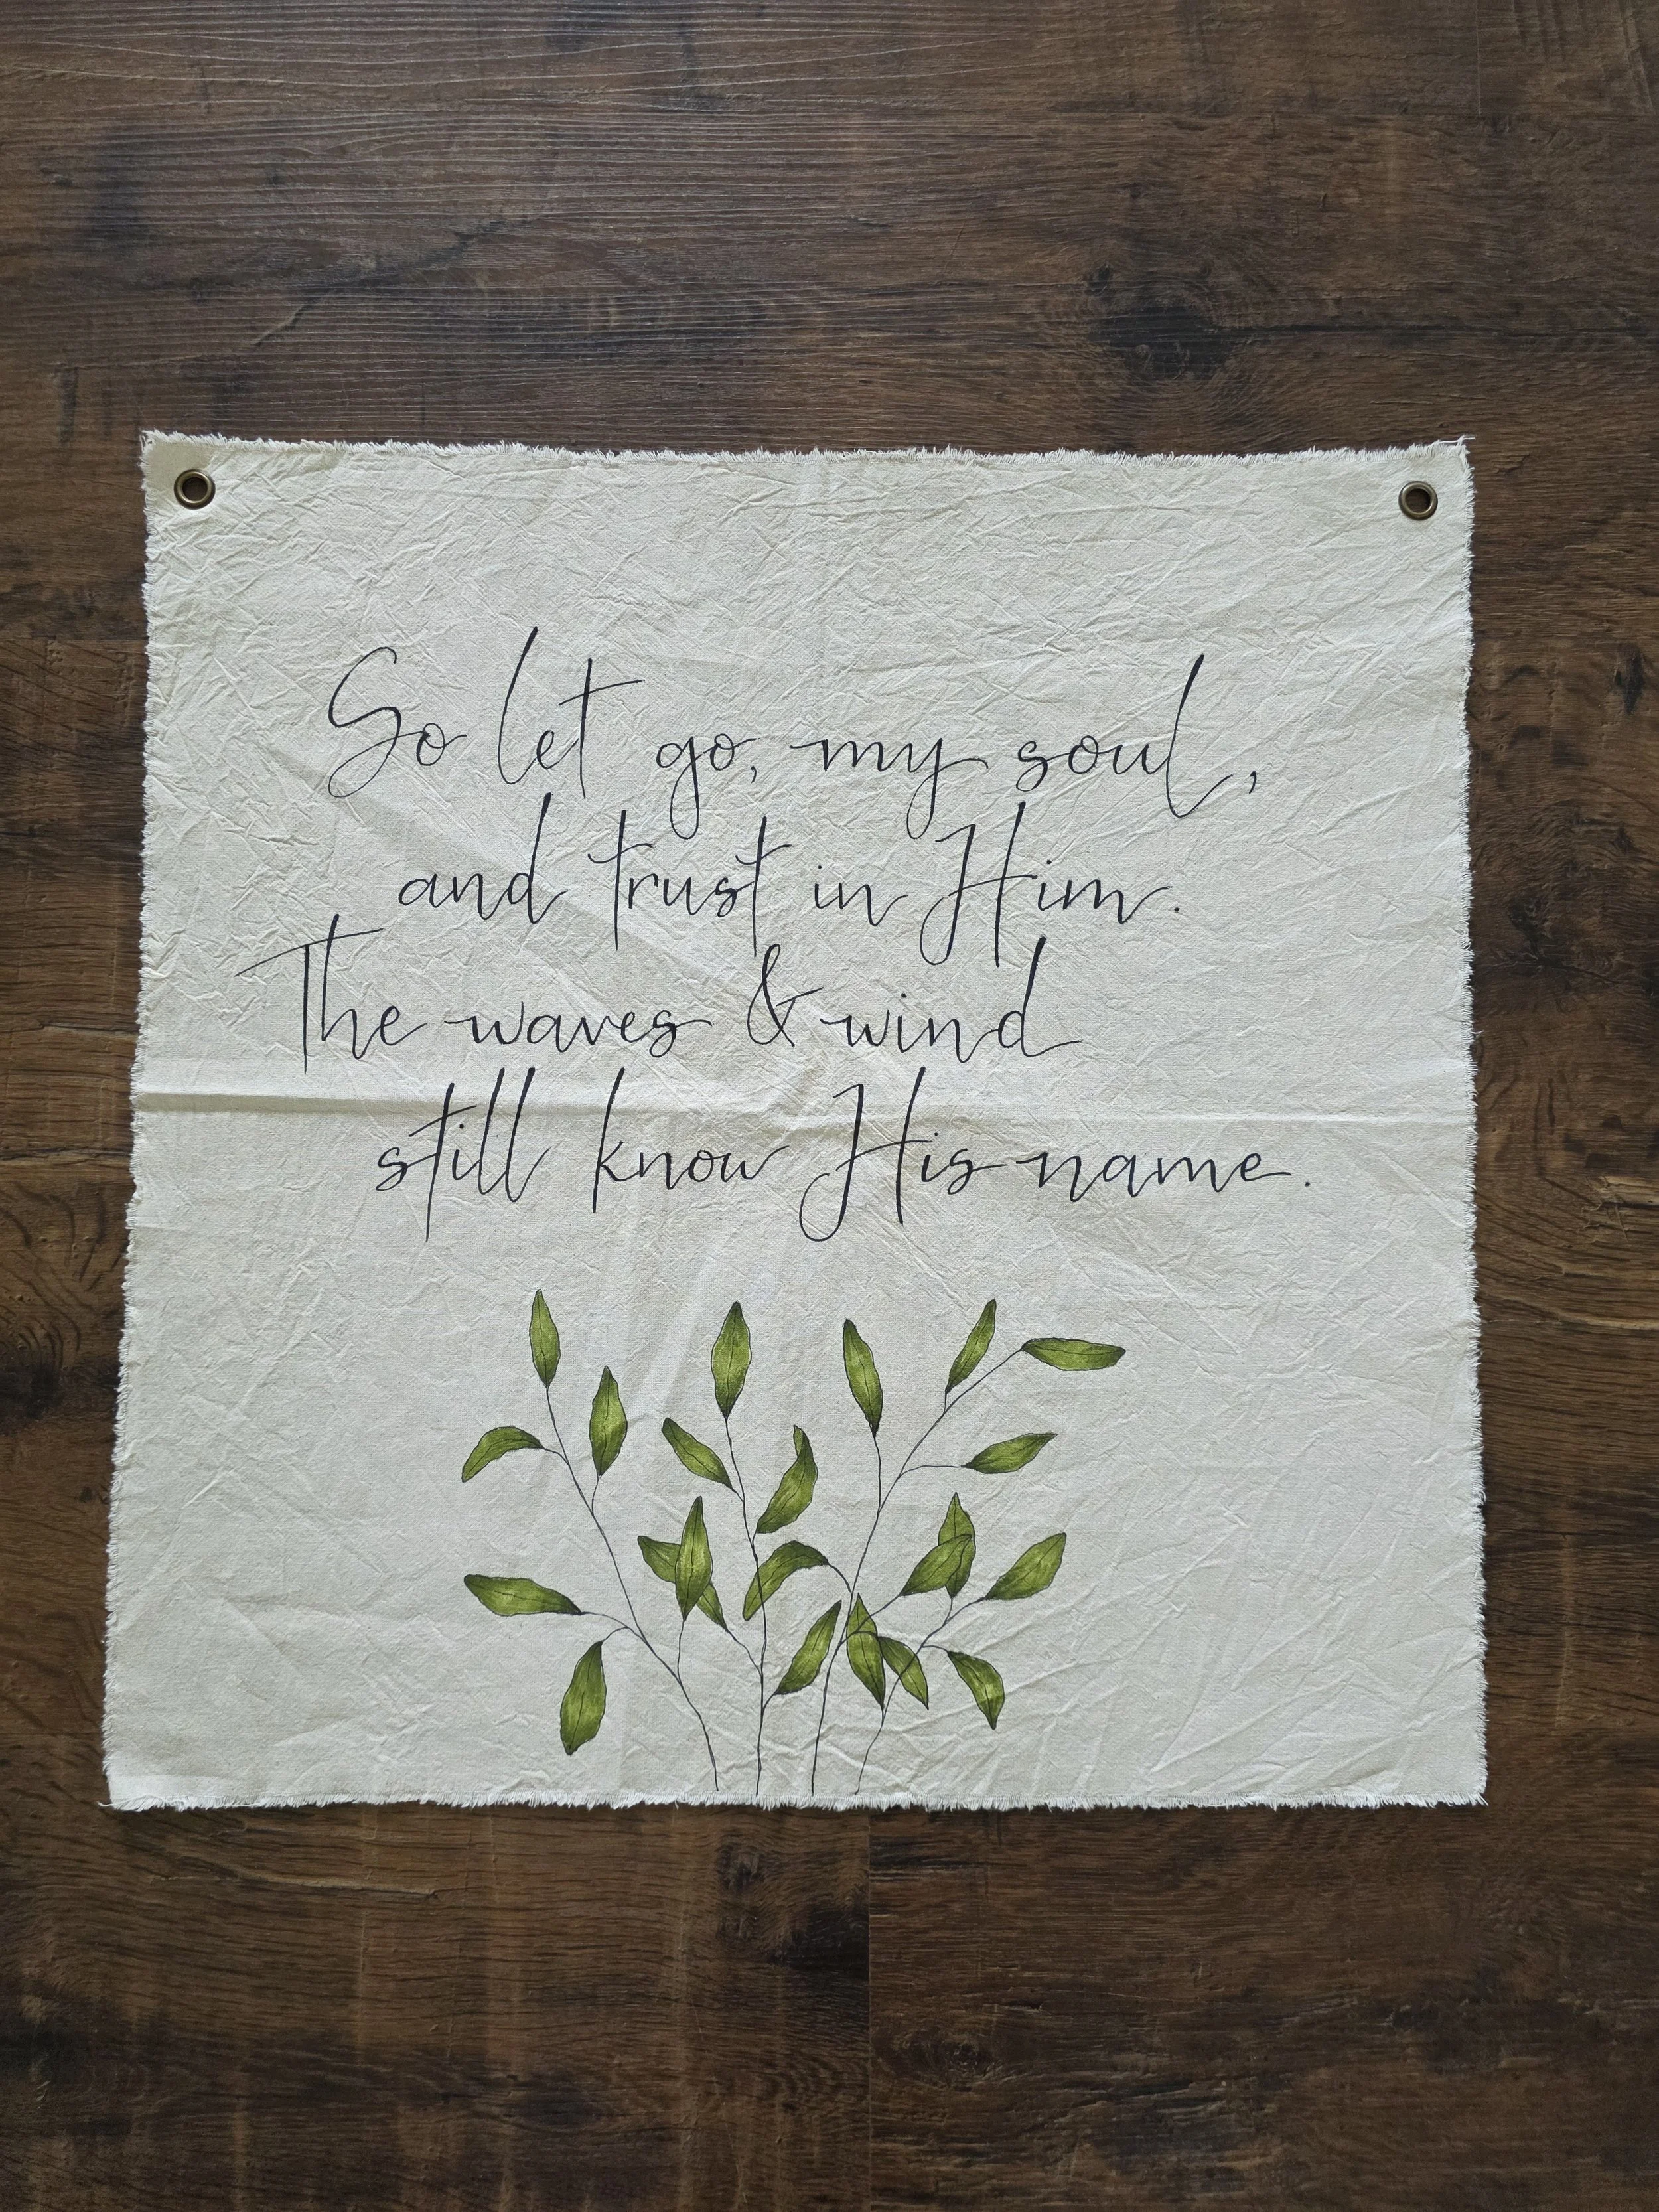 So let go, my soul,
and trust in Him.
The waves & wind
still know His name.